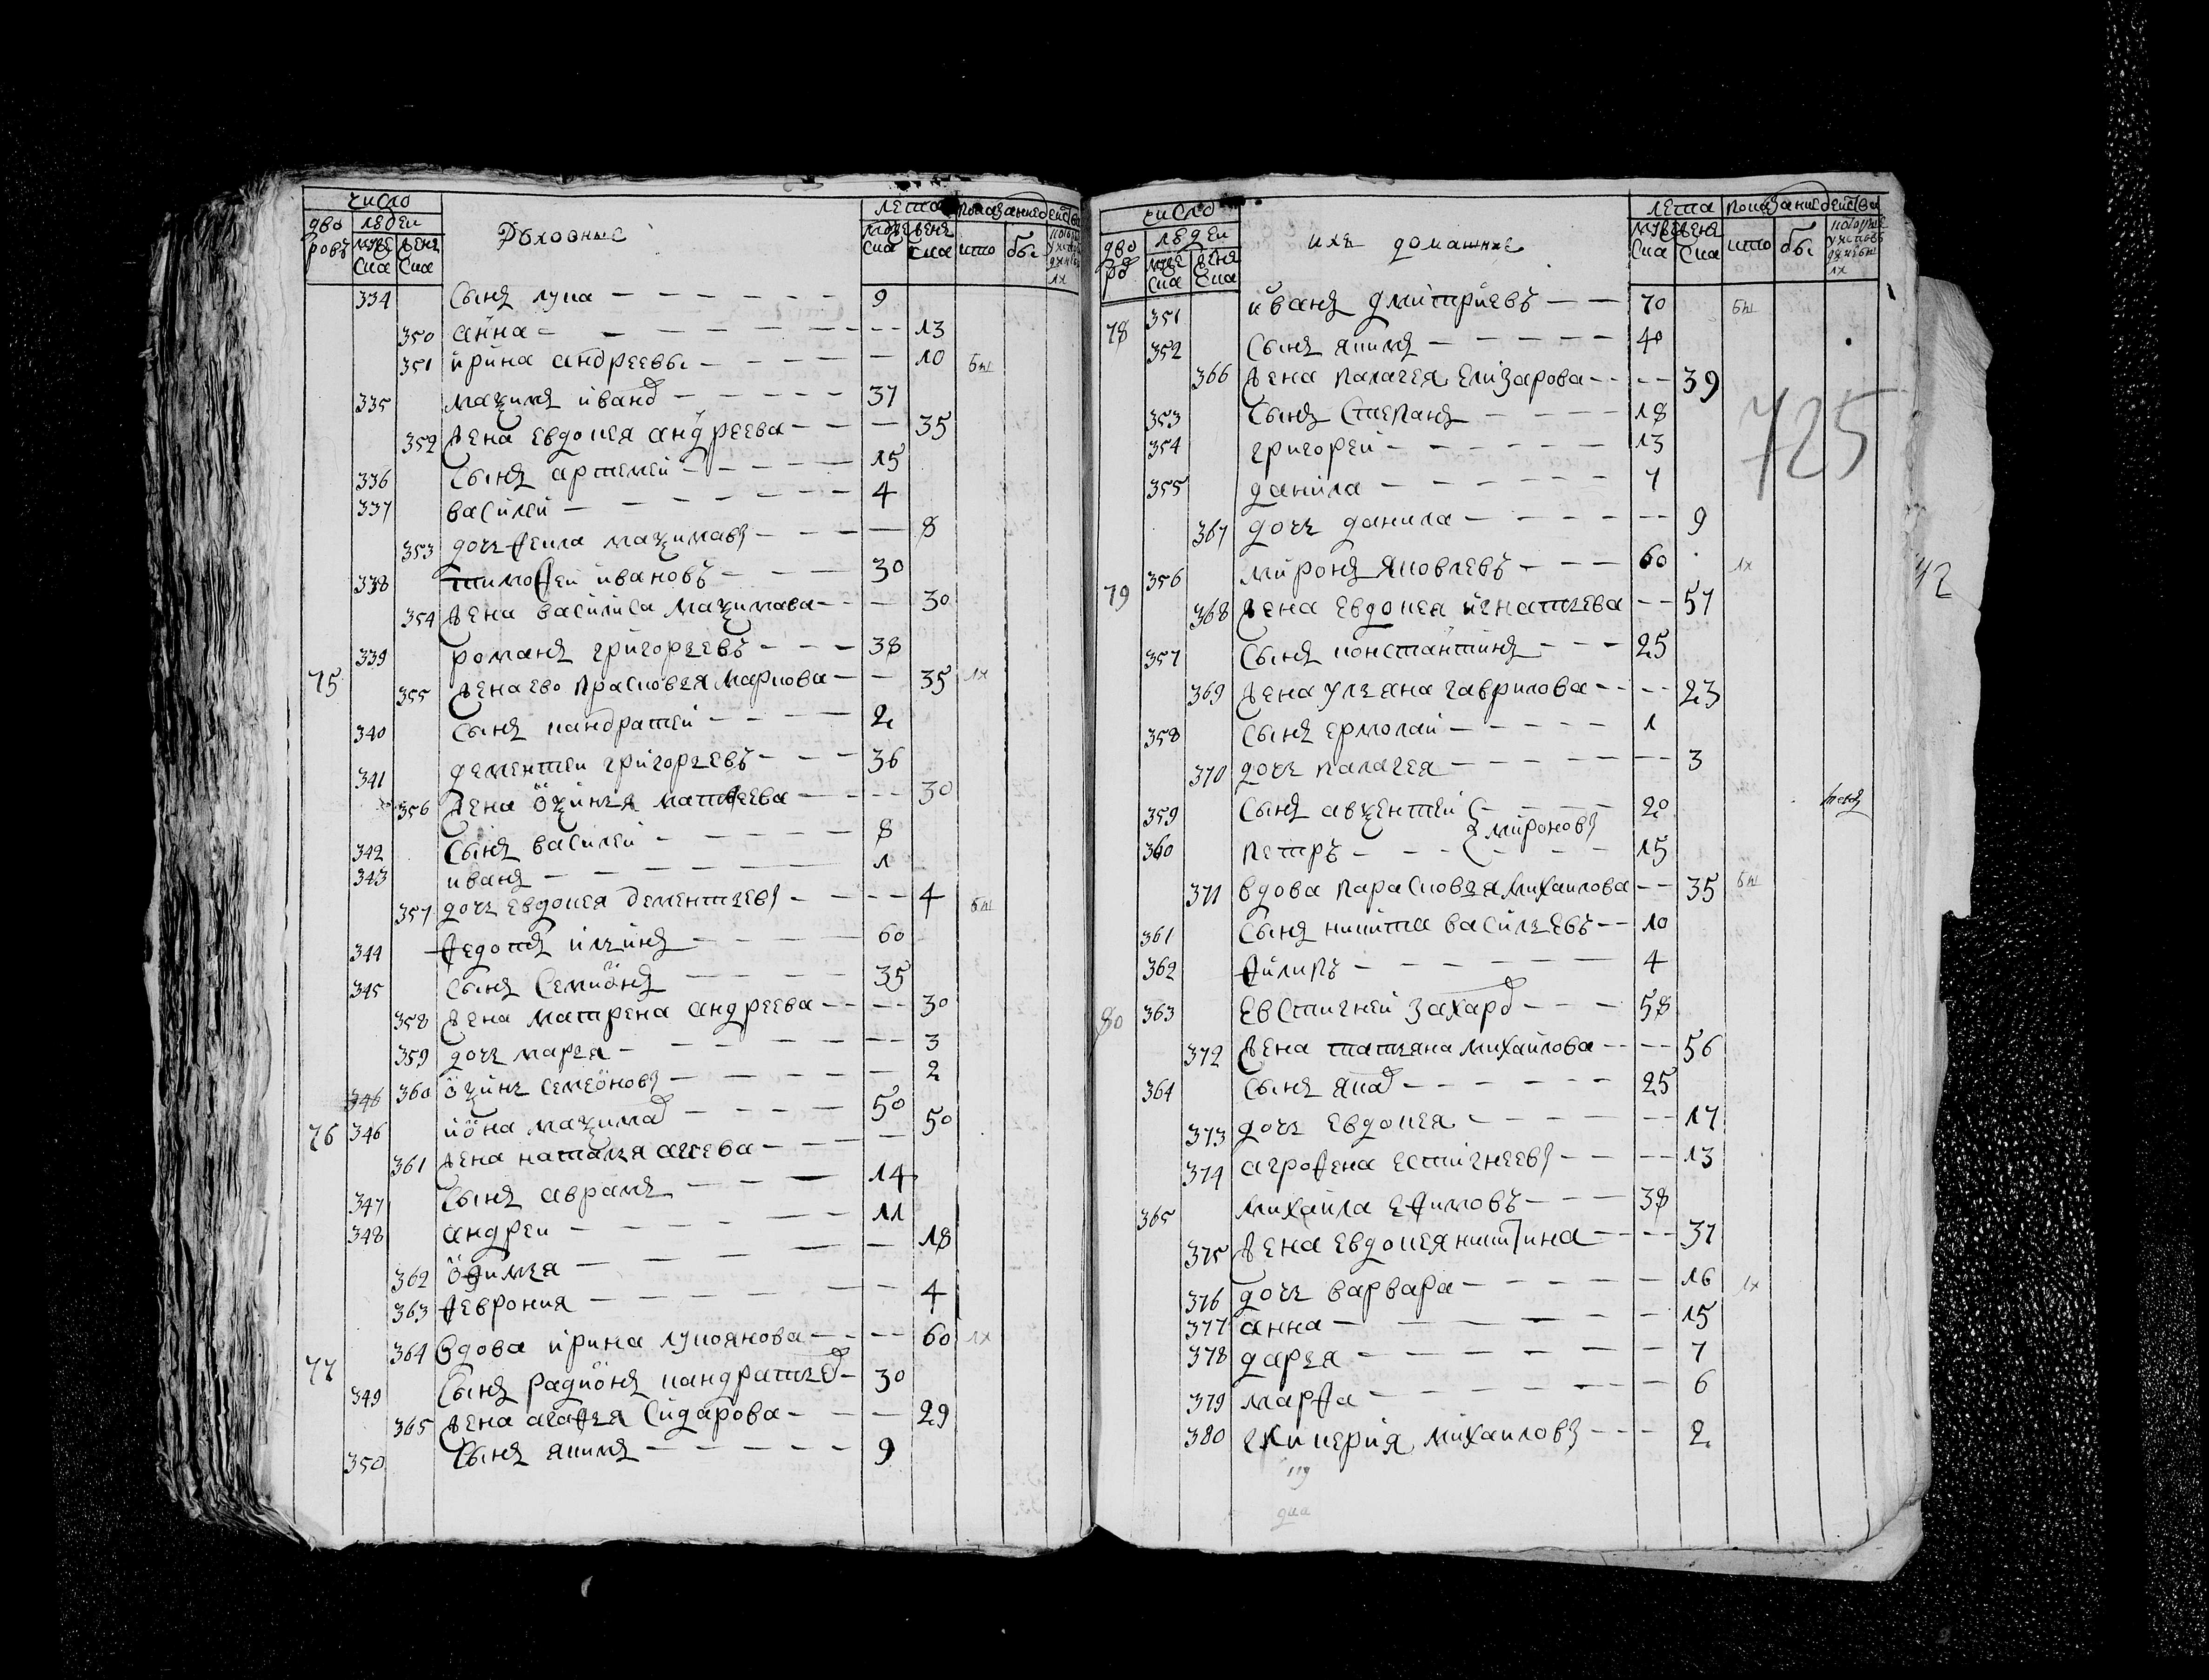 число
дворовъ людеи Духовные лета показание действа
мужеска женска мужеска женска кто бы
334 Сынъ лука 9
350 анна 13
351 ирина андреевы 10 бы
335 маѯимъ иванов 37
352 жена евдокея андреева 35
336 Сынъ артемеи 15
337 василеи 4
353 дочь ѳекла маѯимавы 8
338 тимоѳеи ивановъ 30
354 жена василиса маѯимава 30
339 романъ григорьевъ 38
75 355 жена ево прасковья маркова 35 их
340 Сынъ кандратеи 2
341 дементеи григорьевъ 36
356 жена оѯинья матвеева 30
342 Сынъ василеи 8
343 иванъ 1
357 дочь евдокея дементьевы 4 бы
344 ѳедотъ ильинъ 60
345 Сынъ Семионъ 35
358 жена матрена андреева 30
359 дочь марья 3
346 360 оѯинь семеоновы 2
76 346 иона маѯимав 50
361 жена наталья агеева 50
347 Сынъ аврамъ 14
348 андреи 11
362 оѳимья 18
363 ѳеврония 4
364 вдова ирина лукоянова 60 их
77 349 Сынъ радионъ кандратьев 30
365 жена агаѳья Сидарова 29
350 Сынъ якимъ 9
число
дворо людеи ихъ домашние лета показание действа
мужеска женска мужеска женска кто бы
78 351 иванъ дмитриевъ 70 бы
352 Сынъ якимъ 40
366 жена палагея Елизарова 39
353 Сынъ Степанъ 18
725
354 григореи 13
355 данила 7
367 дочь данила 9
79 356 миронъ яковлевъ 60 их
368 жена евдокея игнатьева 57
357 Сынъ константинъ 25
369 жена ульяна гаврилова 23
358 Сынъ ермолаи 1
370 дочь палагея 3
359 Сынъ авѯентеи 20
мироновы
360 петръ 15
371 вдова парасковья михаилова 35 бы
361 Сынъ никита васильевъ 10
362 ѳилипъ 4
80 363 Евстигнеи захаров 58
372 жена татьяна михаилова 56
364 Сынъ яков 25
373 дочь евдокея 17
374 агроѳена естигнеевы 13
365 михаила еѳимовъ 38
375 жена евдокея никитина 37
376 дочь варвара 16 их
377 анна 15
378 дарья 7
379 марѳа 6
380 гликерия михаиловы 2